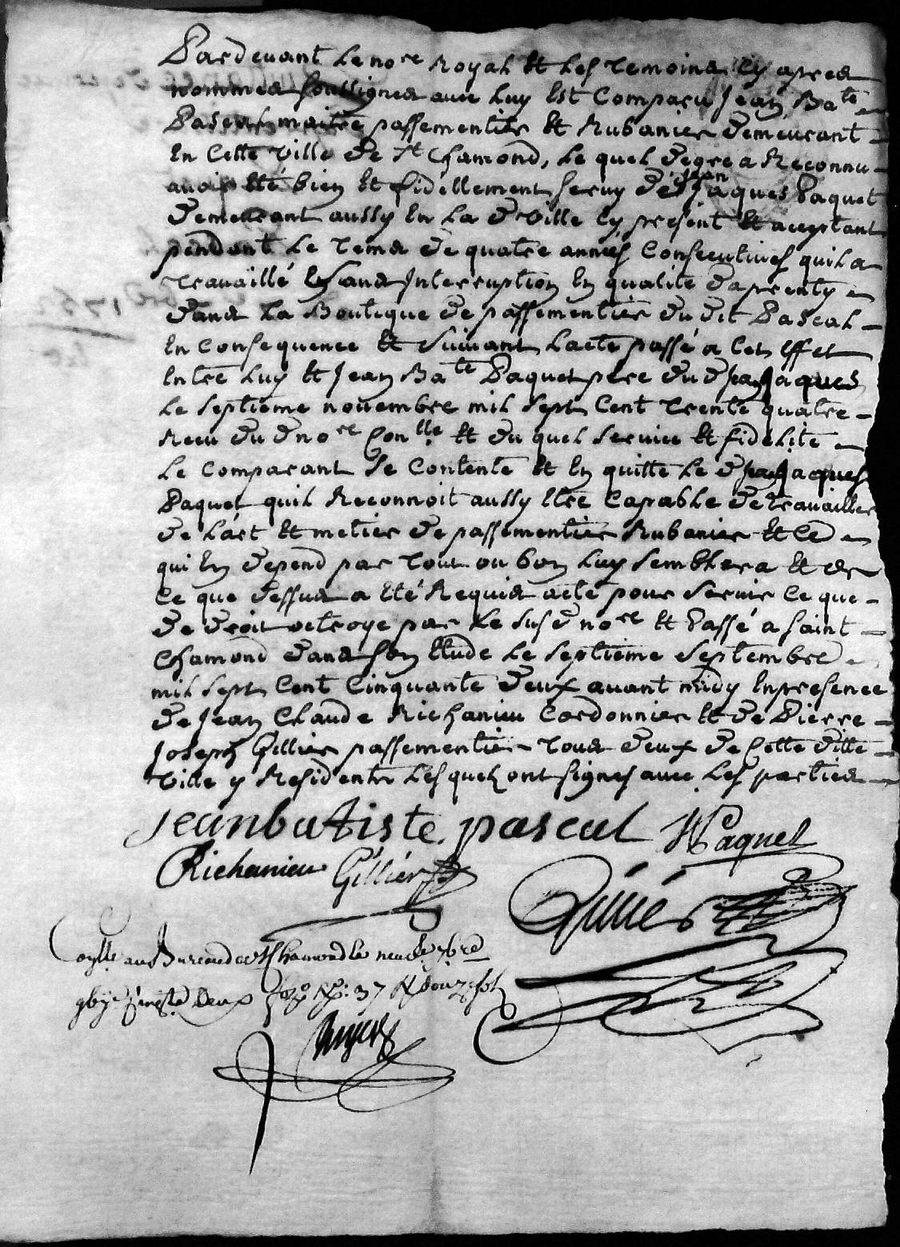 Pardevant Le no.re Royal Et Les Temoins Cy apres
nommes Soussignes avec Luy Est Comparu Jean Ba.te
Pascal maitre passementier Et Rubanier demeurant
En Cette ville de S.t Chamond, Le quel degre a Reconnu
avoir Eté bien Et fidellement Servy de Jean Jaques Paquet
demeurant aussy En La d. ville Cy present Et aceptant
pendant Le Tems de quatre années Consecutives quil a
Travaillé Et sans Interruption En qualité daprenty
dans La Boutique de passementier du dit Pascal
En Consequence Et Suivant Lacte passé a Cet Effet
Entre Luy Et Jean Ba.te Paquet pere du d. Jean Jaques
Le Septieme novembre mil Sept Cent Trente quatre
Recu du d. no.re Et du quel Service Et fidelité
Le Comparant Se Contente Et En quitte Le d. Jean Jaques
Paquet quil Reconnoit aussy Etre Capable de Travailler
de Lart Et metier de passementier Rubanier Et Ce
qui En depend par Tout ou bon Luy Semblera Et de
Ce que dessus a Eté Requis acte pour Servir Ce que
de droit octroyé par Le Susd. no.re Et Passé a Saint
Chamond dans Son Etude Le Septieme Septembre
mil Sept Cent Cinquante deux avant midy En presence
de Jean Claude Richanieu Cordonnier Et de Pierre
Joseph Gillier passementier Tous deux de Cette ditte
Ville y Residents Lesquels ont Signes avec Les parties
Jeanbatiste pascal Paquet
Richanieu Gillier
au Bureau de St Chamond le neuf 7bre
deux